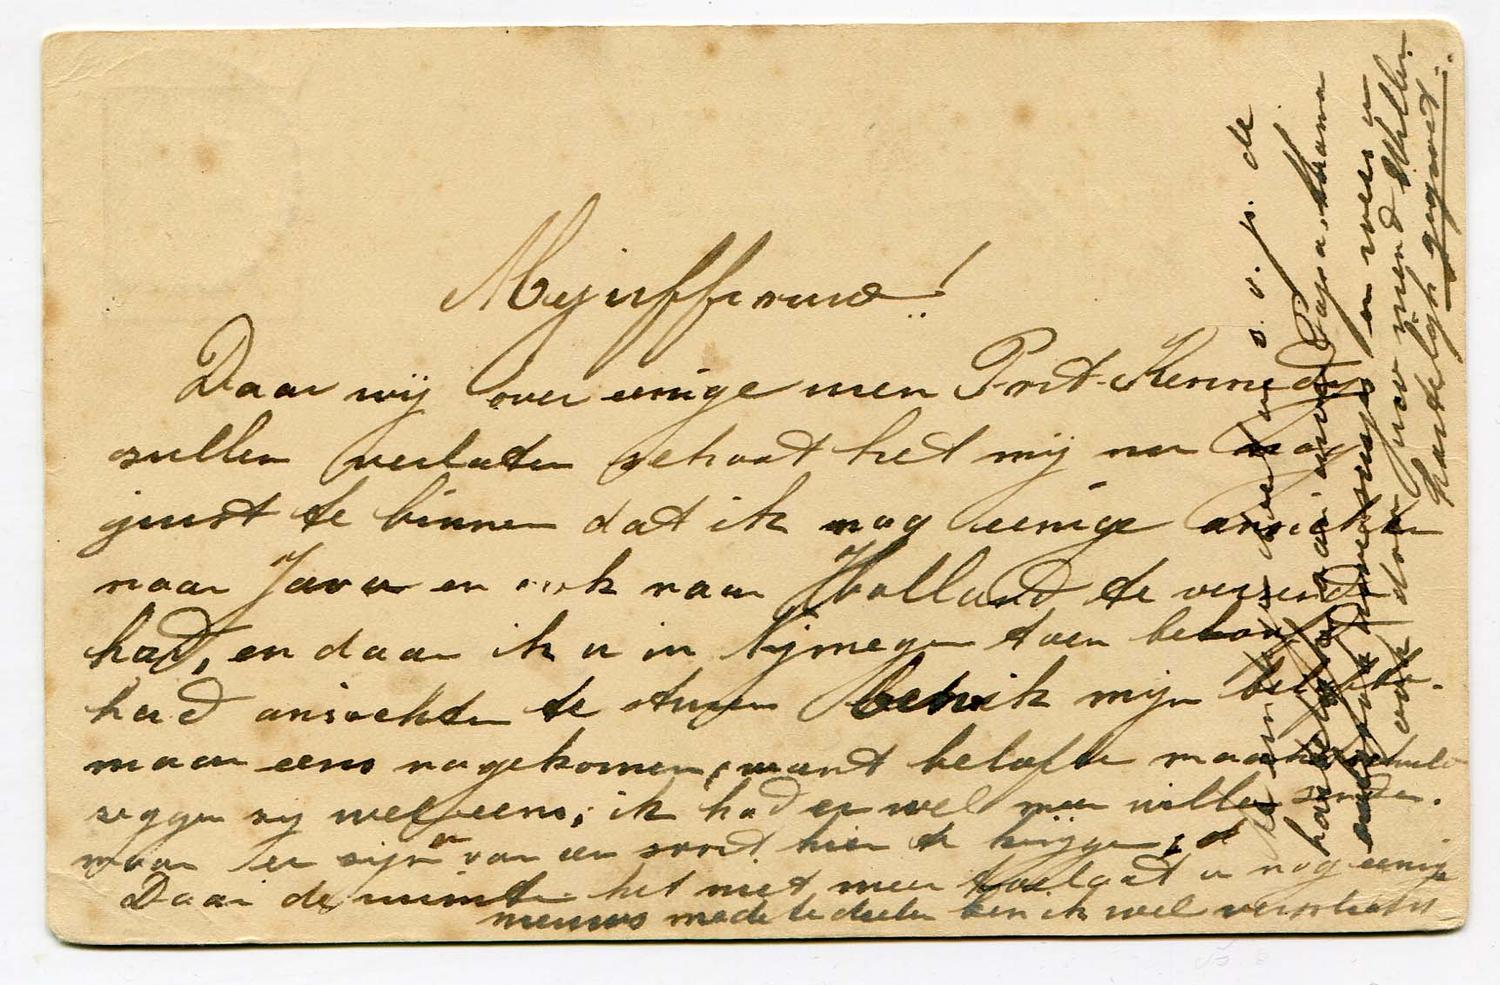 Mejuffrouw!
Daar wij over eenige uren Port-Kennedy
zullen verlaten schoot het mij nu nog
juist te binnen dat ik nog eenige ansichten
naar Java en ook naar Holland te verzenden
had, en daar ik u in Nijmegen toen beloofd
had ansichten te sturen heb ik mijn belofte
maar eens nagekomen, want belofte maakt schuld
zeggen zij wel eens; ik had er wel meer willen zenden.
maar er zijn er van een soort hier te krijgen
Daar de ruimte het niet meer toelaat u nog eenig
nieuws mede te deelen ben ik wel verplicht
s. v. p. de
hartelijke aan uwe Papa Mama
en wees u
ook door uw vriend
hartelijk gegroet.